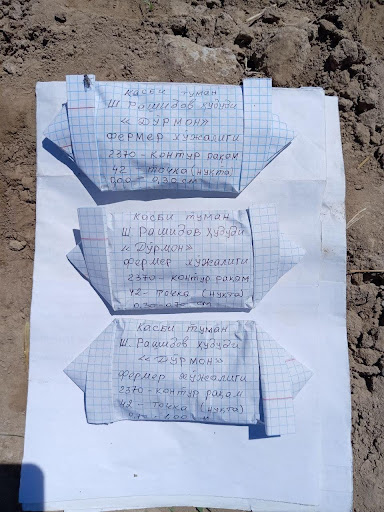 Касби туман
Ш. Рашидов худуди
« ДЎРМОН»
Фермер хужалиги
2370 - контур ракам
42 - точка (нукта)
0,00 - 0,30 см
Касби туман
Ш. Рашидов худуди
« Дўрмон»
фермер хужалиги
2370 - контур ракам
42 - точка (нукта)
0,30-0,70 см
Касби туман
Ш. Рашидов худуди
« ДЎРМОН»
Фермер хужалиги
2370 - контур ракам
42 - точка (нукта)